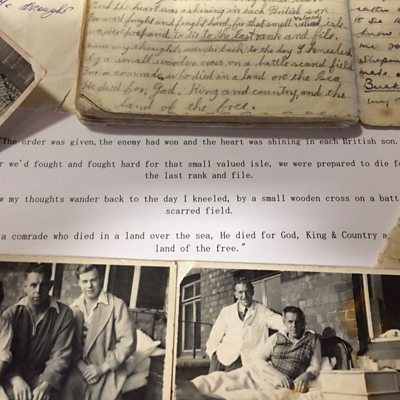 thoughts
and the heart was ashining in each British son
For we'd fought and fought hard, for that small valued isle,
we were prepared to die to the last rank and file.
Now my thoughts, wander back to the day I kneeled
by a small wooden cross, on a battle scared field
For a comrade who died in a land on the Sea
He died for God, King and country, and the
land of the free.
"The order was given, the enemy had won and the heart was shining in each British son.
r we'd fought and fought hard for that small valued isle, we were prepared to die fo
the last rank and file.
w my thoughts wander back to the day I kneeled, by a small wooden cross on a batt
scarred field.
a comrade who died in a land over the sea, He died for God, King & Country a
land of the free."